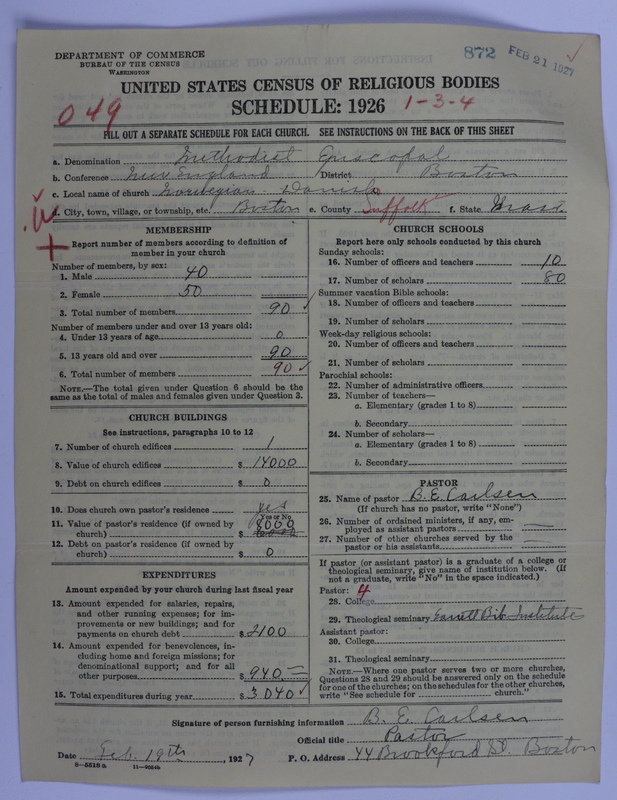 DEPARTMENT OF COMMERCE
BUREAU OF THE CENSUS
WASHINGTON
872 FEB 21 1927
UNITED STATES CENSUS OF RELIGIOUS BODIES
SCHEDULE: 1926
049
1-3-4
FILL OUT A SEPARATE SCHEDULE FOR EACH CHURCH. SEE INSTRUCTIONS ON THE BACK OF THIS SHEET
a. Denomination Methodist Episcopal
b. Conference New England District Boston
c. Local name of church Norwegian-Danish
d. City, town, village, or township, etc. Boston e. County Suffolk f. State Mass.
MEMBERSHIP
Report number of members according to definition of
member in your church
Number of members, by sex:
1. Male 40
2. Female 50
3. Total number of members 90
Number of members under and over 13 years old:
4. Under 13 years of age 0
5. 13 years old and over 90
6. Total number of members 90
NOTE.—The total given under Question 6 should be the
same as the total of males and females given under Question 3.
CHURCH BUILDINGS
See instructions, paragraphs 10 to 12
7. Number of church edifices 1
8. Value of church edifices $ 14000
9. Debt on church edifices $ 0
10. Does church own pastor's residence yes
Yes or No
11. Value of pastor's residence (if owned by
church) $ 8000
12. Debt on pastor's residence (if owned by
church) $ 0
EXPENDITURES
Amount expended by your church during last fiscal year
13. Amount expended for salaries, repairs,
and other running expenses; for im-
provements or new buildings; and for
payments on church debt $ 2100
14. Amount expended for benevolences, in-
cluding home and foreign missions; for
denominational support; and for all
other purposes $ 940
15. Total expenditures during year $ 3040
CHURCH SCHOOLS
Report here only schools conducted by this church
Sunday schools:
16. Number of officers and teachers 10
17. Number of scholars 80
Summer vacation Bible schools:
18. Number of officers and teachers
19. Number of scholars
Week-day religious schools:
20. Number of officers and teachers
21. Number of scholars
Parochial schools:
22. Number of administrative officers
23. Number of teachers—
a. Elementary (grades 1 to 8)
b. Secondary
24. Number of scholars—
a. Elementary (grades 1 to 8)
b. Secondary
PASTOR
25. Name of pastor B. E. Carlsen
(If church has no pastor, write "None")
26. Number of ordained ministers, if any, em-
ployed as assistant pastors
27. Number of other churches served by the
pastor or his assistants
If pastor (or assistant pastor) is a graduate of a college or
theological seminary, give name of institution below. (If
not a graduate, write "No" in the space indicated.)
Pastor: 4
28. College
29. Theological seminary Garrett Bib. Institute
Assistant pastor:
30. College
31. Theological seminary
NOTE.—Where one pastor serves two or more churches,
Questions 28 and 29 should be answered only on the schedule
for one of the churches; on the schedules for the other churches,
write "See schedule for church."
Signature of person furnishing information B. E. Carlsen
Official title Pastor
Date Feb. 19th, 1927 P. O. Address 44 Brookford St. Boston
8—5518a 11—9084b